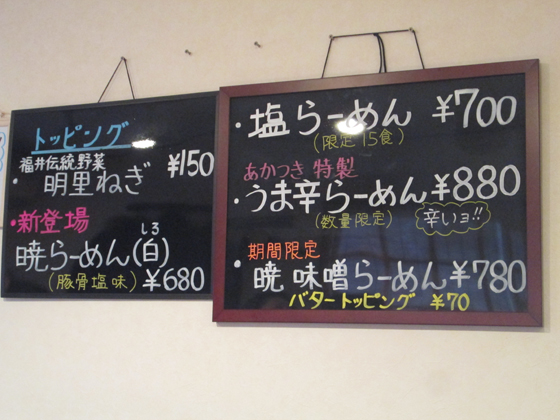 トッピング
福井伝統野菜
・明里ねぎ ¥150
・新登場
しろ
暁らーめん(白)
(豚骨塩味) ¥680
・塩らーめん ¥700
(限定15食)
あかつき 特製
・うま辛らーめん ¥880
(数量限定) 辛いヨ!!
期間限定
・暁 味噌らーめん ¥780
バタートッピング ¥70